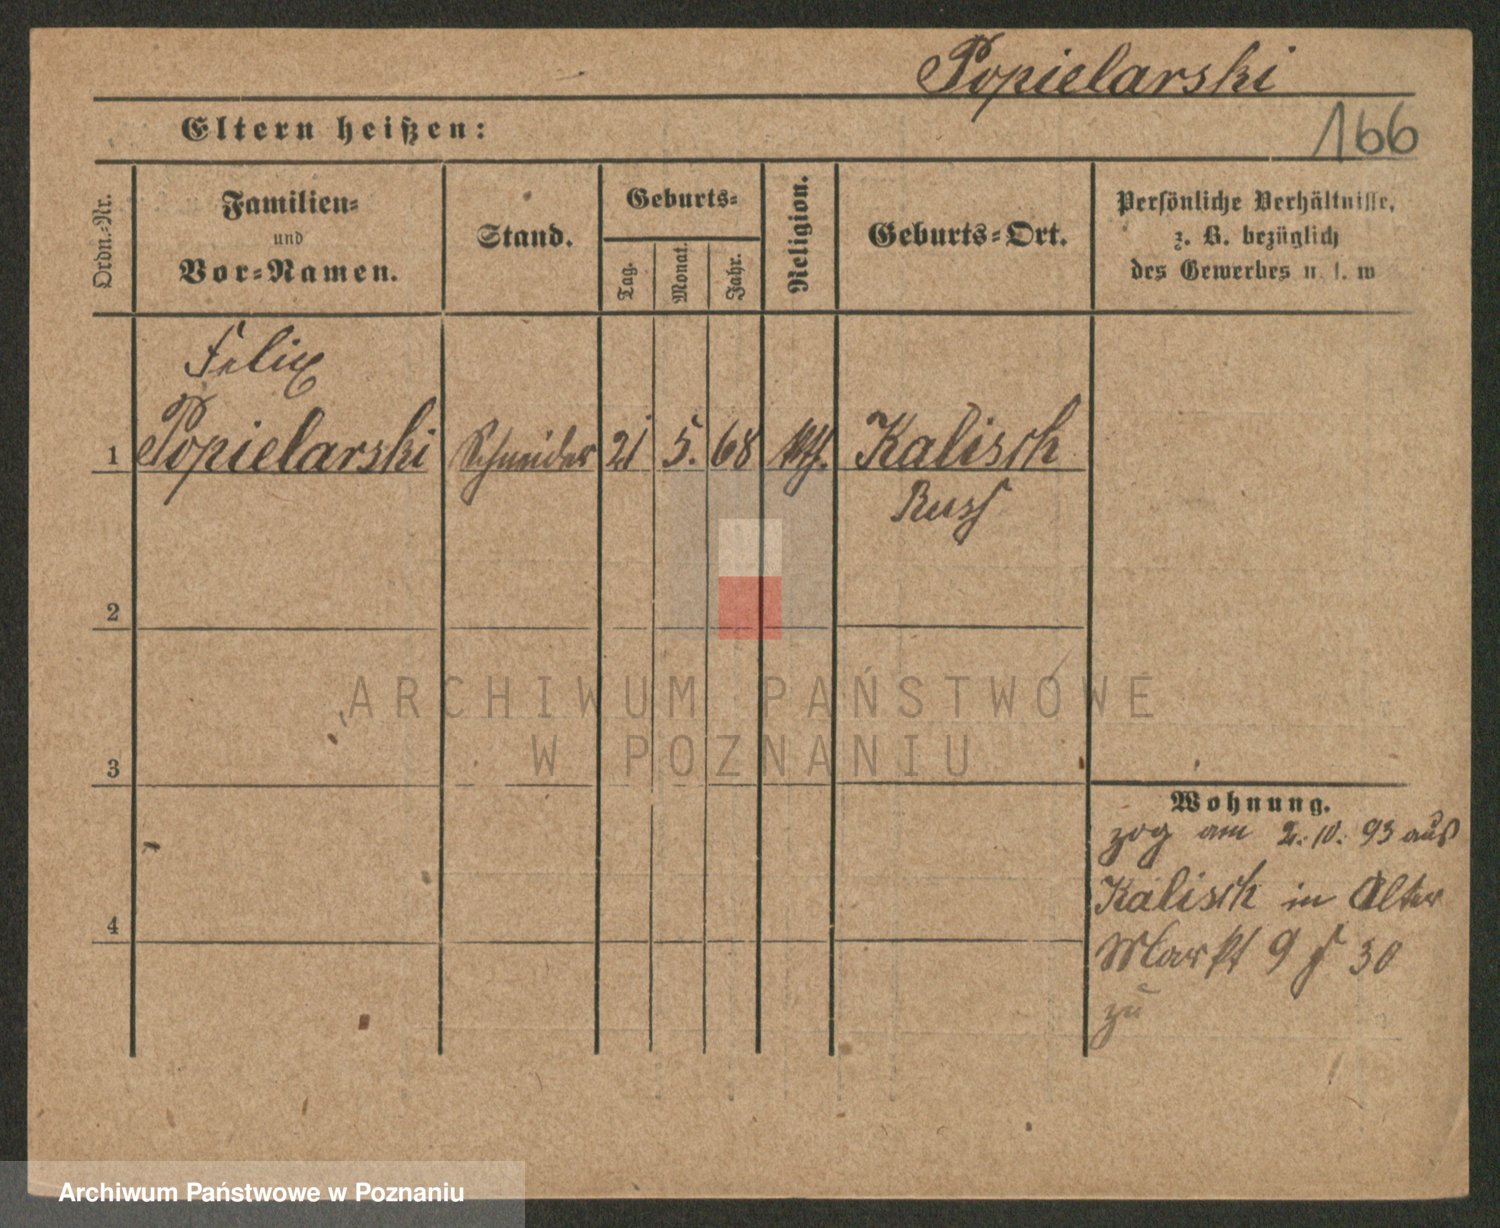 Popielarski
Eltern heißen:
166
Ordn.-Nr.
Familien-
und
Vor-Namen.
Stand.
Geburts-
Tag.
Monat.
Jahr.
Religion.
Geburts-Ort.
Persönliche Verhältnisse,
z. B. bezüglich
des Gewerbes u. s. w
Felix
1 Popielarski Schneider 21 5. 68 kth. Kalisch
Russ
2
3
4
Wohnung.
zog am 2. 10. 93 aus
Kalisch in Alter
Markt 9 30
zu
ARCHIWUM PAŃSTWOWE
W POZNANIU
Archiwum Państwowe w Poznaniu